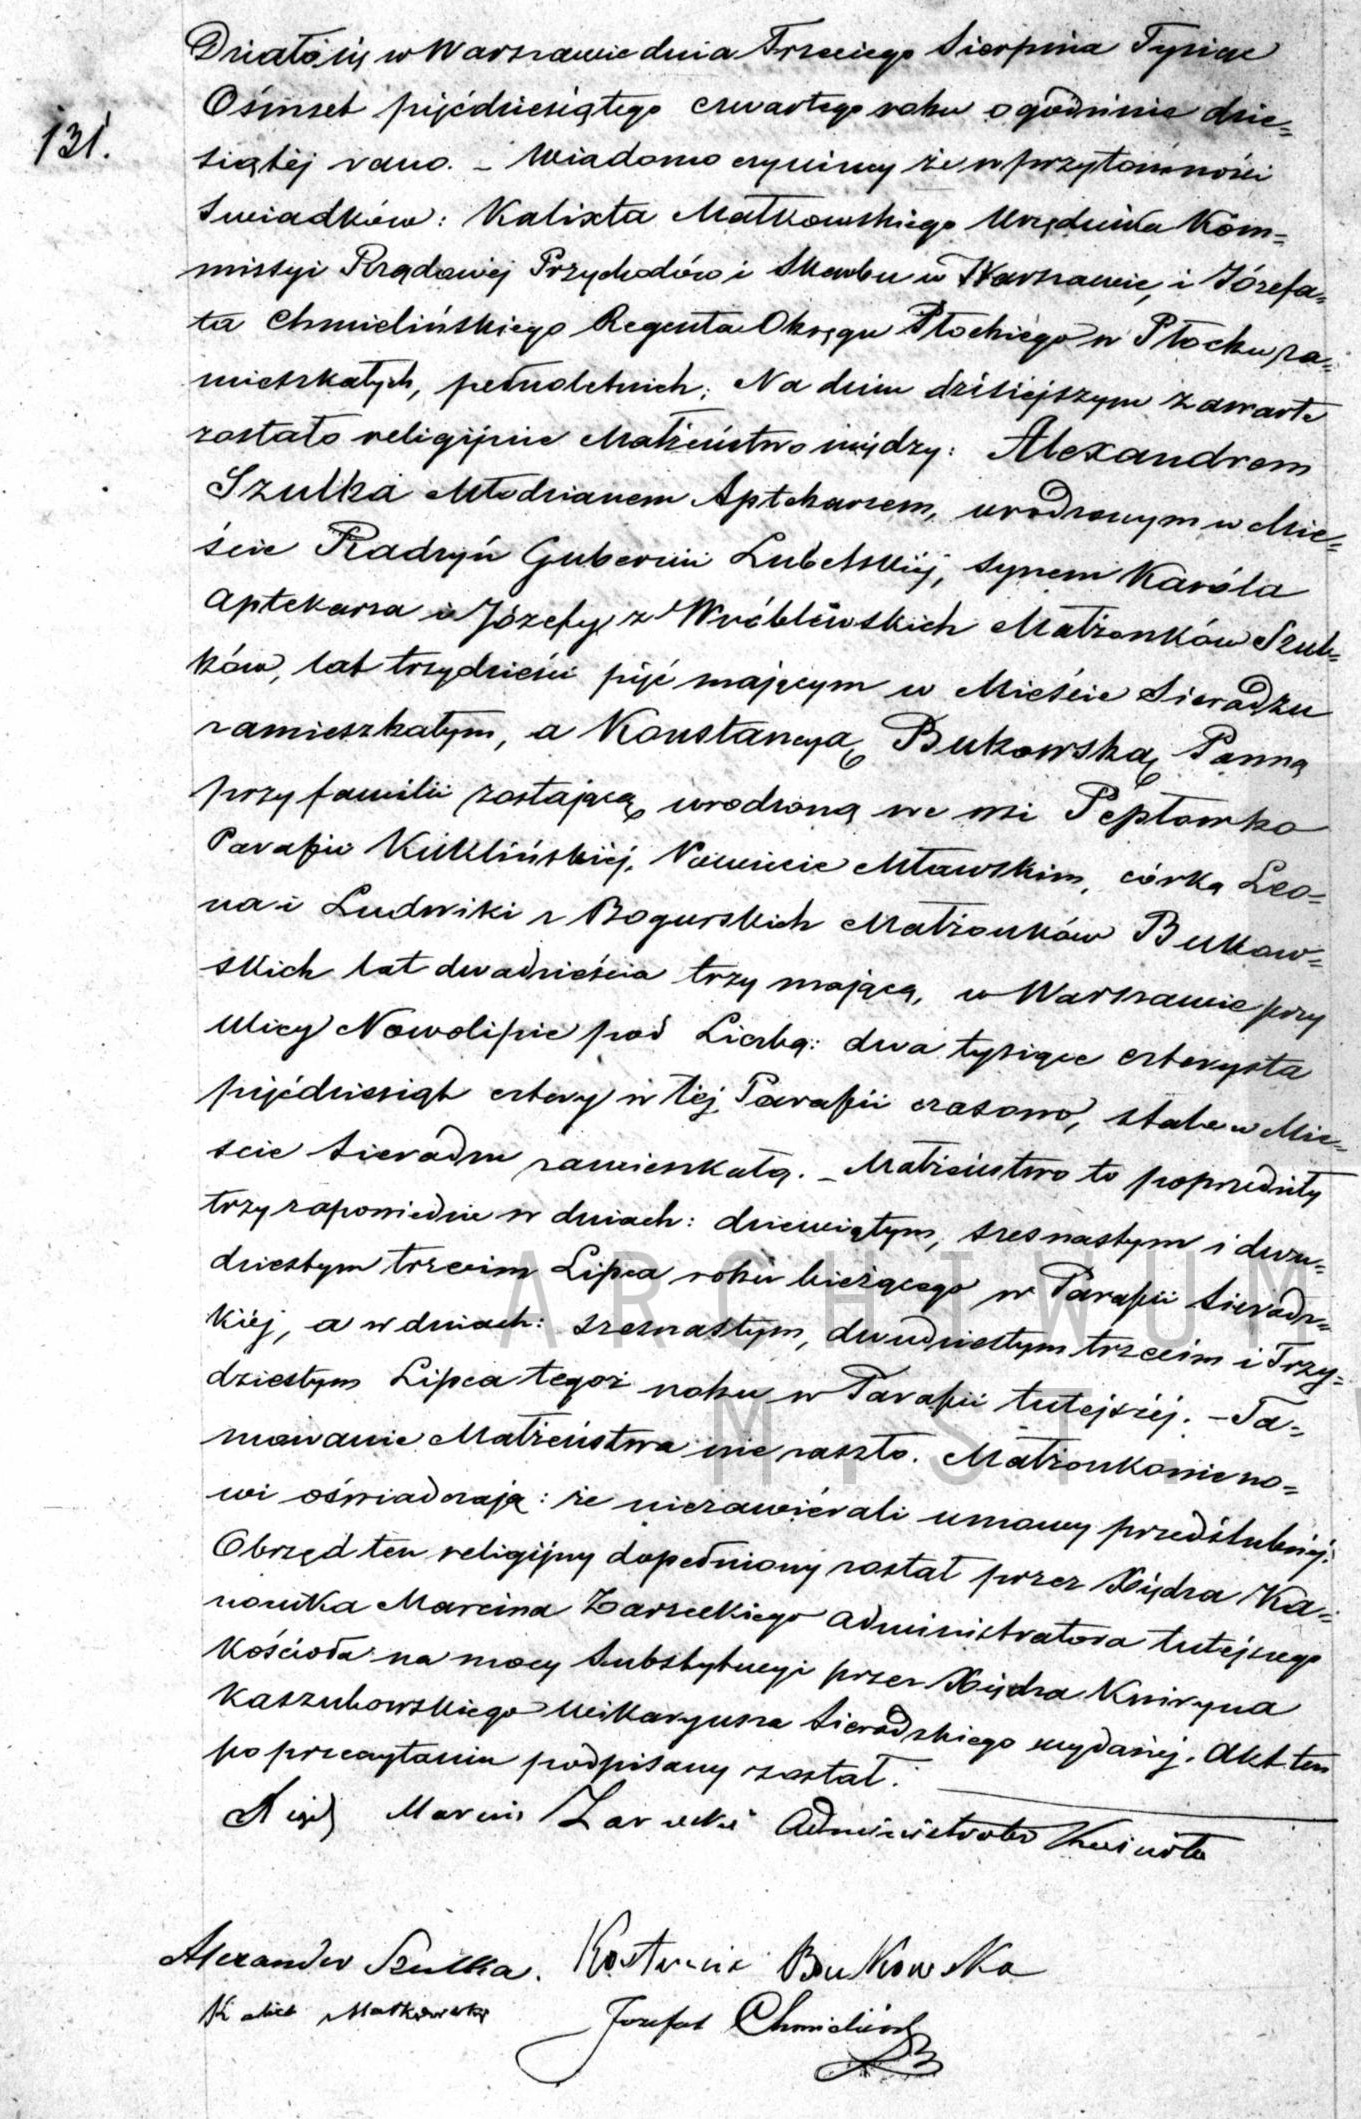 Działo się w Warszawie dnia Trzeciego Sierpnia Tysiąc
Ośmset pięćdziesiątego czwartego roku o godzinie dzie=
131.
siątéj rano. – Wiadomo czynimy że w przytomności
Swiadków: Kalixta Małkowskiego Urzędnika Kom=
missyi Rządowéj Przychodów i Skarbu w Warszawie, i Józefa=
ta Chmielińskiego Regenta Okręgu Płockiego w Płocku za=
mieszkałych, pełnoletnich; Na dniu dzisiejszym zawarte
zostało religijnie Małżeństwo między: Alexandrem
Szulka Młodzianem Aptekarzem, urodzonym w Mie=
ście Radzyń Gubernii Lubelskiéj, synem Karóla
Aptekarza i Józefy z Wróblewskich Małżonków Szul=
ków, lat trzydzieści pięć mającym w Mieście Sieradzu
zamieszkałym, a Konstancyą Bukowską Panną
przy familii zostającą urodzoną we wsi Pepłowko
Parafii Kuklińskiéj, Powiecie Mławskim, córką Leo=
na i Ludwiki z Bogurskich Małżonków Bukow=
skich lat dwadzieścia trzy mającą, w Warszawie przy
Ulicy Nowolipie pod Liczbą: dwa tysiące czterysta
pięćdziesiąt cztery w téj Parafii czasowo, stale w Mie=
scie Sieradzu zamieszkałą. – Małżeństwo to poprzedziły
trzy zapowiedzie w dniach: dziewiątym, szesnastym i dwu=
dziestym trzecim Lipca roku bieżącego w Parafii Sieradz=
kiéj, a w dniach: szesnastym, dwudziestym trzecim i Trzy=
dziestym Lipca tegoż roku w Parafii tutejszéj. – Ta=
mowanie Małżeństwa nie zaszło. Małżonkowie no=
wi oświadczają: że niezawiérali umowy przedślubnéj.
Obrzęd ten religijny dopełniony został przez Xiędza Ka=
nonika Marcina Zarzeckiego Administratora tutejszego
Kościoła na mocy Substytucyi przez Xiędza Kwiryna
Kaszubowskiego Wikaryusza Sieradzkiego wydanéj. Akt ten
po przeczytaniu podpisany został.
Xiądz Marcin Zarzecki Administrator Kościoła
Alexander Szulka. Konstancia Bukowska
Kalixt Małkowski Jozefat Chmieliński
ARCHIWUM
M.ST.